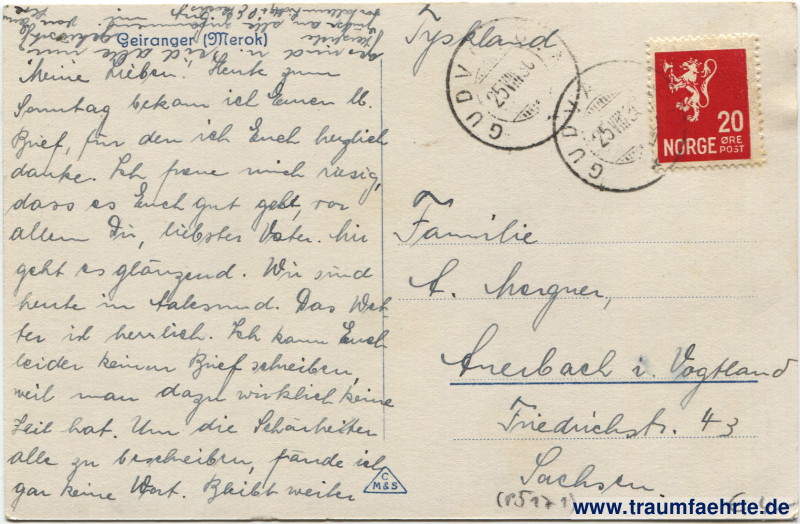 Geiranger (Merok)
Meine Lieben! Heute zum
Sonntag bekam ich Euren lb.
Brief, für den ich Euch herzlich
danke. Ich freue mich riesig,
dass es Euch gut geht, vor
allem Dir, liebster Vater. Mir
geht es glänzend. Wir sind
heute in Aalesund. Das Wet-
ter ist herrlich. Ich kann Euch
leider keinen Brief schreiben,
weil man dazu wirklich keine
Zeit hat. Um die Schönheiten
alle zu beschreiben, fände ich
gar keine Wort. Bleibt weiter
C
M&S
Tyskland
GUDV
25 VIII 36
GUDV
25 VIII 36
20
NORGE ØRE
POST
Familie
A. Morgner,
Auerbach i. Vogtland
Friedrichstr. 43
Sachsen.
(P5171)
www.traumfaehrte.de